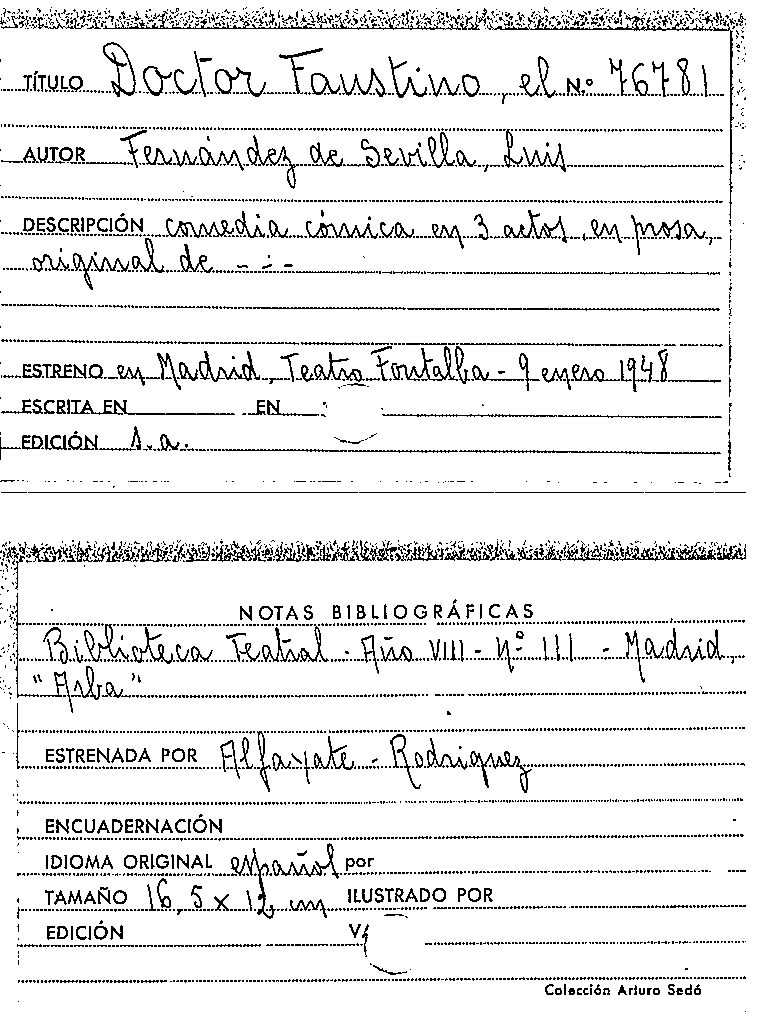 TÍTULO Doctor Faustino, el N.º 76781
AUTOR Fernández de Sevilla, Luis
DESCRIPCIÓN comedia cómica en 3 actos, en prosa,
original de - . -
ESTRENO en Madrid, Teatro Fontalba - 9 enero 1948
ESCRITA EN EN
EDICIÓN s.a.
NOTAS BIBLIOGRÁFICAS
Biblioteca Teatral - Año VIII - Nº 111 - Madrid,
"Arba"
ESTRENADA POR Alfayate - Rodriguez
ENCUADERNACIÓN
IDIOMA ORIGINAL español por
TAMAÑO 16,5 x 12 cm ILUSTRADO POR
EDICIÓN
Colección Arturo Sedó